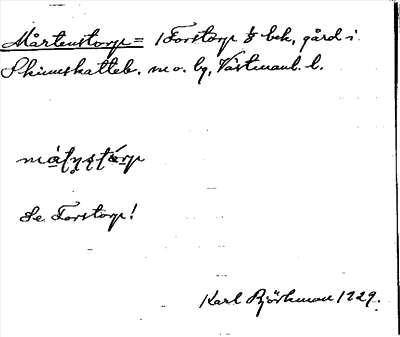 Mårtenstorp = 1 Forstorp ⅛ bek, gård i
Skinnskatteb. sn o. bg, Västmanl. l.
Se Forstorp!
Karl Björkman 1929.